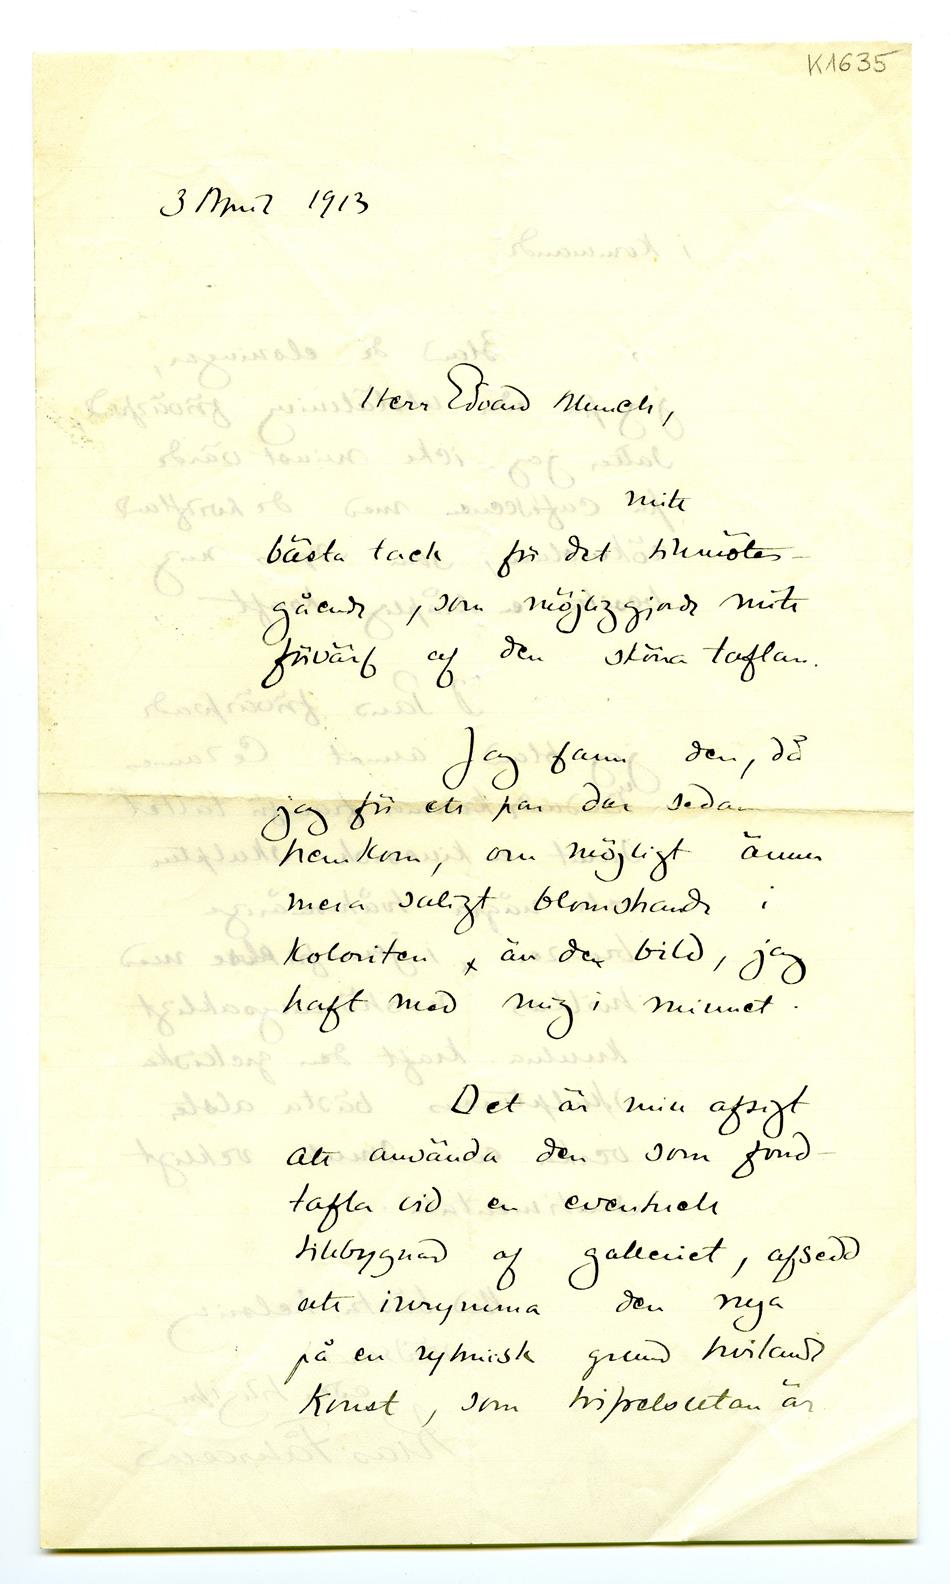 K1635
3 April 1913
Herr Edvard Munch,
mitt
bästa tack för det tillmötes-
gående, som möjliggjorde mitt
förvärf af den sköna taflan.
Jag fann den, då
jag för ett par dar sedan
hemkom, om möjligt ännu
mera saligt blomstrande i
koloriten, än den bild, jag
haft med mig i minnet.
Det är min afsigt
att använda den som fond-
tafla vid en eventuell
tillbygnad af galleriet, afsedd
att inrymma den nya
på en rytmisk grund hvilande
konst, som tvifvelsutan är